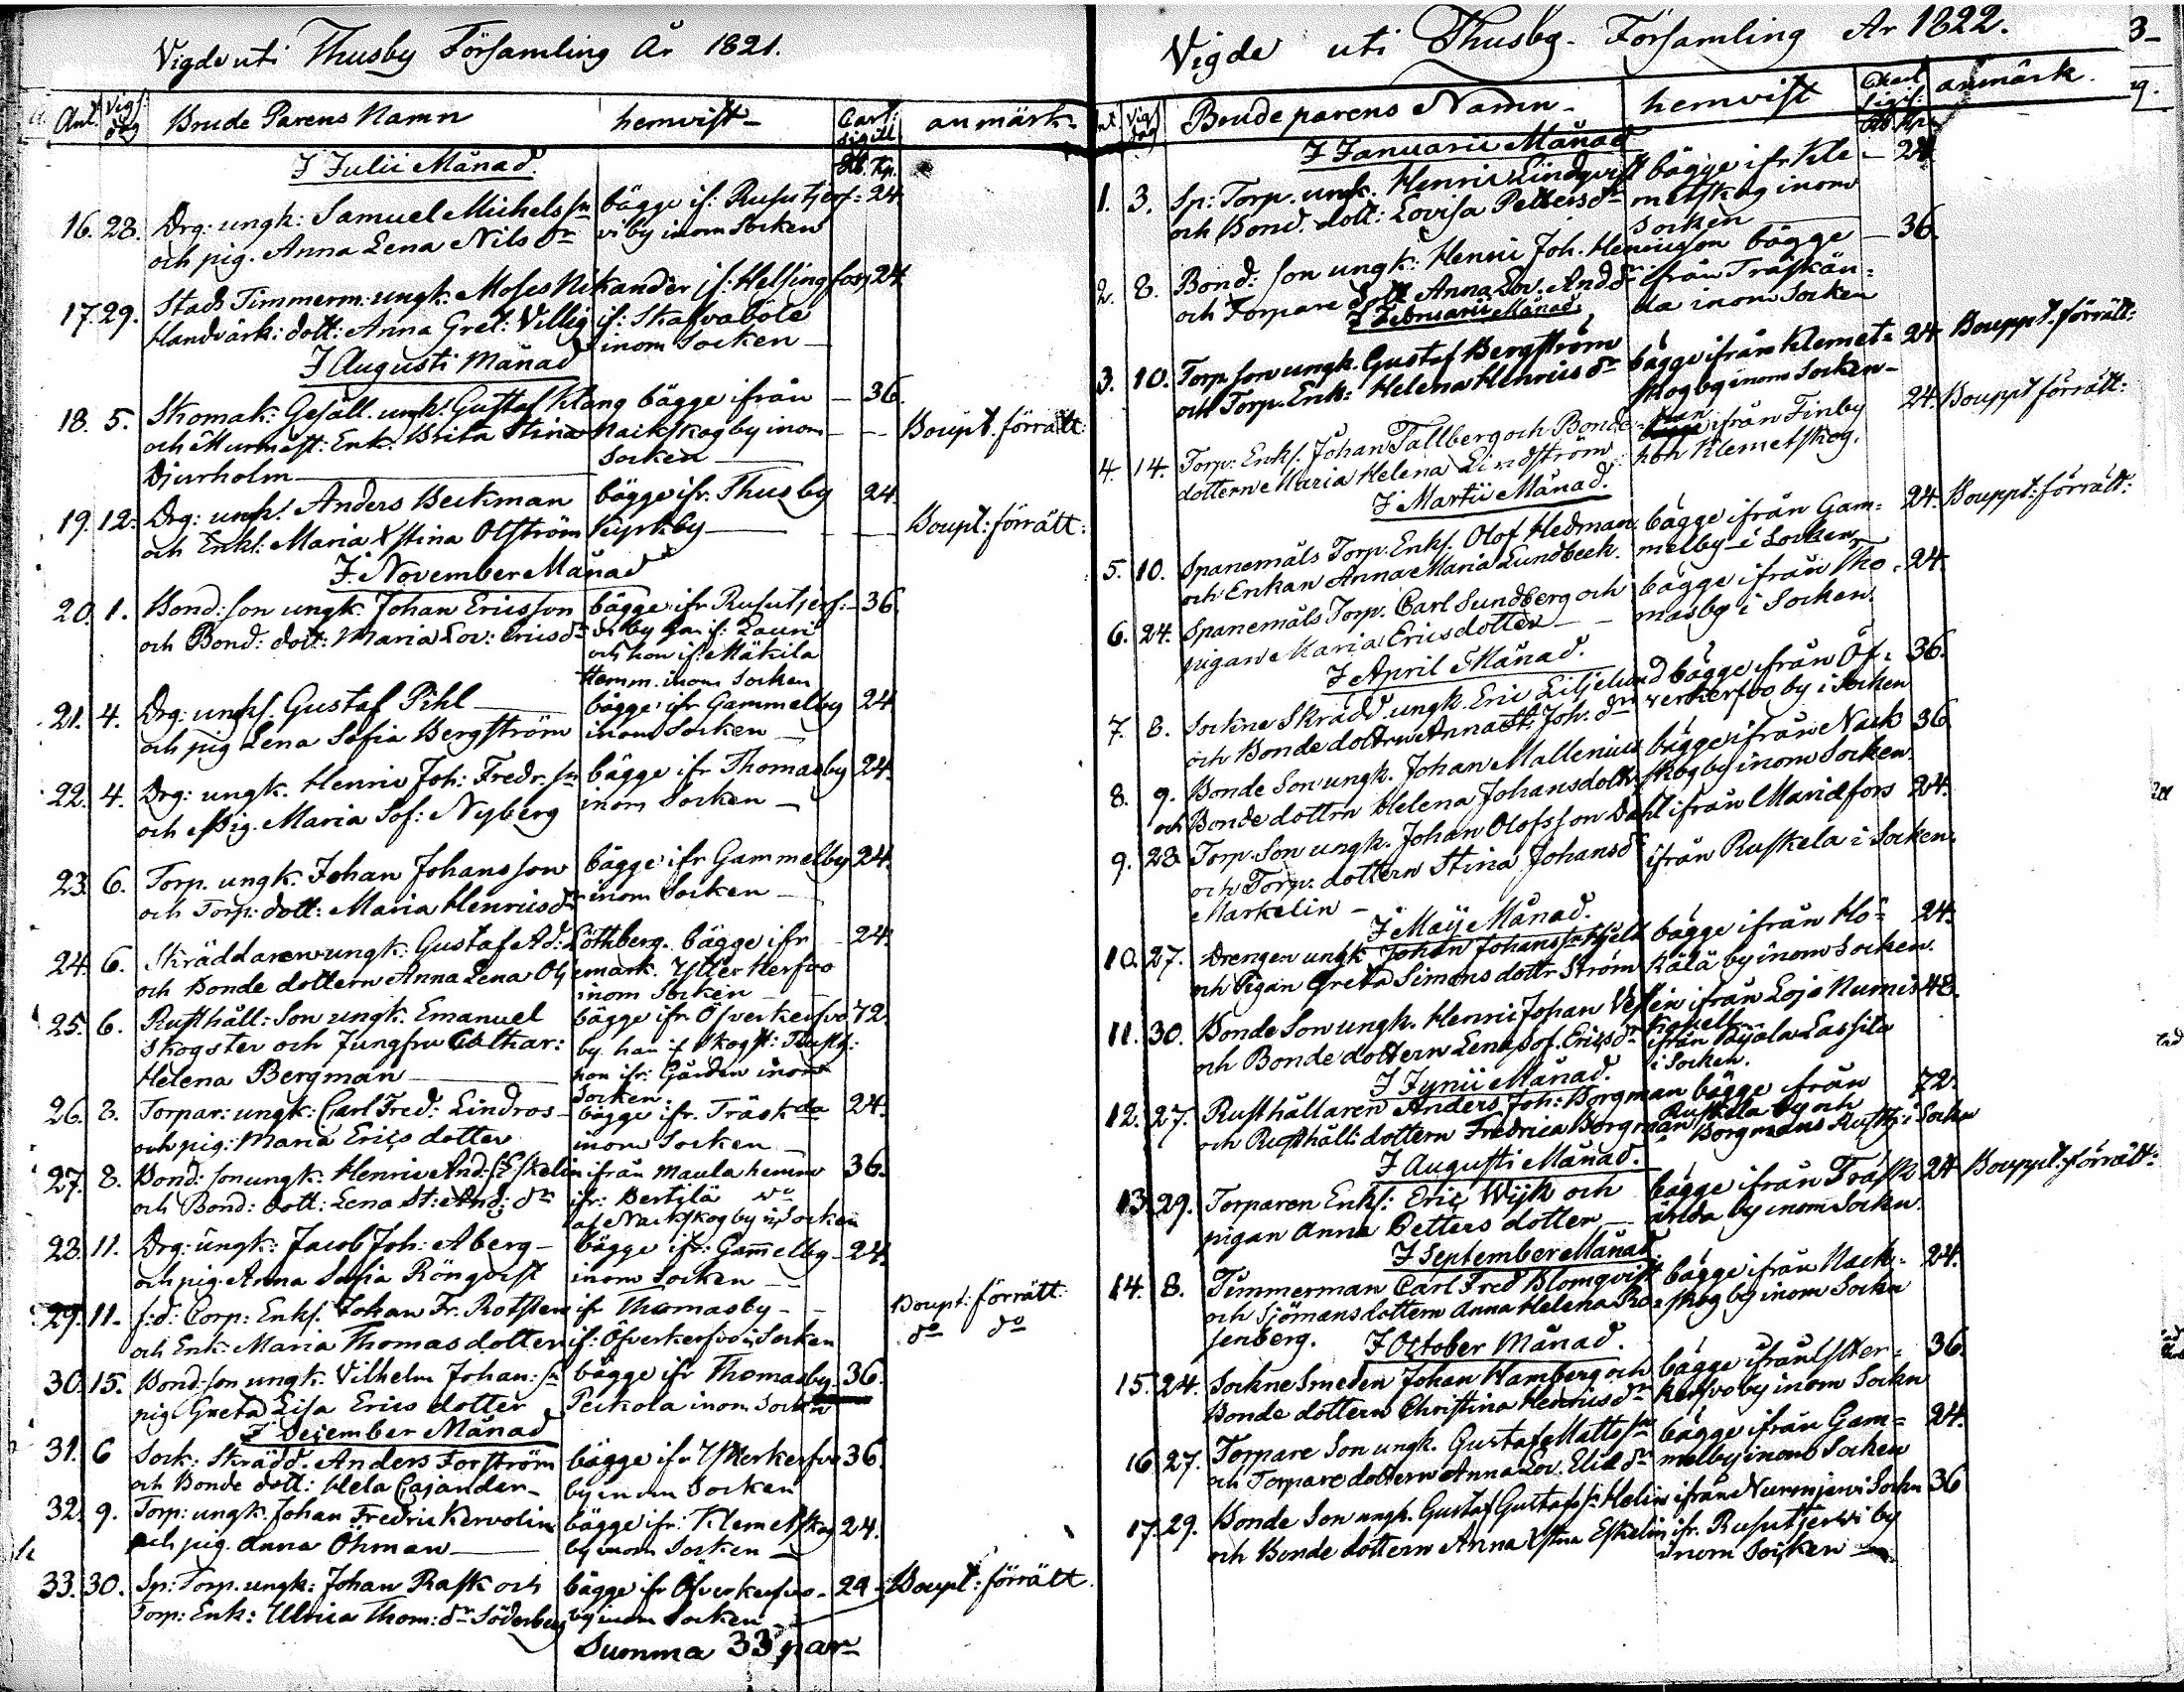 Vigde uti Thusby Församling År 1821.
Ant. Vigs: dag Brude Parens Namn hemvist Cart: sigill anmärk.
Rb. Kp.
I Julii Månad.
16. 28. Drg: ungk: Samuel Michelsson bägge if: Rusutjerf- 24.
och pig. Anna Lena Nils dr vi by inom Socken
17. 29. Stads Timmerm: ungk. Moses Nikander if: Helsingfors 24.
Handvärk: dott: Anna Gret: Villig if: Skafvaböle
inom Socken
I Augusti Månad
18. 5. Skomak: Gesäll. ungk: Gustaf Klang bägge ifrån 36.
och Murmest: Enk. Brita Stina Nackskog by inom Boupt. förrätt:
Djurholm Socken
19. 12. Drg: ungk: Anders Beckman bägge ifr. Thusby 24.
och Enk: Maria Xstina Olström Kyrkby Boupt: förrätt:
I November Månad
20. 1. Bond: son ungk. Johan Ericsson bägge ifr Rusutjerf- 36.
och Bond: dott: Maria Lov: Erics dr vi by han if: Lauri
och hon if: Mäkila
Hemm. inom Socken
21. 4. Drg: ungk. Gustaf Pihl bägge ifr Gammelby 24
och pig Lena Sofia Bergström inom Socken
22. 4. Drg: ungk. Henric Joh: Fredr. sn bägge ifr Thomasby 24.
och Pig. Maria Sof: Nyberg inom Socken
23. 6. Torp. ungk: Johan Johansson bägge ifr Gammelby 24.
och Torp: dott: Maria Henrics dr inom Socken
24. 6. Skräddaren ungk: Gustaf Ad: Löthberg. bägge ifr 24.
och Bonde dottern Anna Lena Oljemark. Ytterkerfvo
inom Socken
25. 6. Rusthåll: Son ungk. Emanuel bägge ifr Öfverkerfvo 72.
Skogster och Jungfru Cathar: by. han if Skogst: Rusth:
Helena Bergman hon ifr: Gården inom
Socken
26. 8. Torpar: ungk: Carl Fred: Lindros bägge ifr. Träskda 24.
och pig: Maria Erics dotter inom Socken
27. 8. Bond: son ungk: Henric And: sn Eskelin ifrån Maula hemm 36.
och Bond: dott: Lena St: And: dr ifr: Bertylä do
af Nackskog by i Socken
28. 11. Drg: ungk: Jacob Joh: Aberg bägge ifr: Gamelby 24.
och pig. Anna Sofia Rönqvist inom Socken
29. 11. f: d: Corp: Enkl. Johan Fr. Rotsten ifr Thomasby Boupt: förrätt:
och Enk: Maria Thomasdotter if: Öfverkerfvo i Socken do do
30. 15. Bond: son ungk. Vilhelm Johan: sn bägge ifr Thomasby 36.
pig. Greta Lisa Erics dotter Peckola inom Socken
I December Månad
31. 6 Sock: Skrädd. Anders Forström bägge ifr Ytterkerfvo 36.
och Bonde dott: Hela Cajander by inom Socken
32. 9. Torp: ungk. Johan Fredric Kervolin bägge ifr: Klemetskog 24.
och pig. Anna Öhman by inom Socken
33. 30. Sp: Torp. ungk: Johan Rask och bägge ifr Öfverkerfvo 24. Boupt: förrätt.
Torp: Enk: Ulrica Thom: dr Söderberg by inom Socken
Summa 33 par
Vigde uti Thusby Församling År 1822.
Vigs dag Brude parens Namn hemvist Chart Sigil: anmärk.
I Januarii Månad
1. 3. Sp: Torp. ungk. Henric Lindqvist bägge ifr Kle- 24
och Bond. dott: Lovisa Petters dr metskog inom
Socken
2. 8. Bond: son ungk: Henric Joh. Henricsson bägge 36.
och Torpare dott Anna Lov. And: dr ifrån Träskän=
da inom Socken
I Februarii Månad.
3. 10. Torp. son ungk. Gustaf Bergström bägge ifrån Klemet= 24. Bouppt. förrätt:
och Torp. Enk: Helena Henrics dr skog by inom Socken
4. 14. Torp: Enkl. Johan Tallberg och Bonde- han ifrån Finby 24. Bouppt förrätt:
dottern Maria Helena Lindström hon Klemetskog.
I Martii Månad.
5. 10. Spanemåls Torp. Enkl. Olof Hedman bägge ifrån Gam= 24. Bouppt: förrätt:
och Enkan Anna Maria Lundbeck. melby i Socken
6. 24. Spanemåls Torp. Carl Sundberg och bägge ifrån Tho= 24
pigan Maria Ericsdotter masby i Socken.
I April Månad.
7. 8. Sockne Skrädd. ungk. Eric Liljelund bägge ifrån Öf= 36.
och Bonde dottren Anna St. Joh. dr verkerfvo by i Socken
8. 9. Bonde Son ungk. Johan Mallenius bägge ifrån Nack 36
och Bonde dottrn Helena Johansdottr. skog by inom Socken.
9. 28. Torp. Son ungk. Johan Olofsson Dahl ifrån Mariefors 24.
och Torp. dottern Stina Johans dr ifrån Ruskela i Socken.
Markelin
I Maij Månad.
10. 27. Drengen ungk Johan Johans sn Hjelt bägge ifrån Hö= 24.
och Pigan Greta Simons dottr Ström kälä by inom Socken.
11. 30. Bonde Son ungk. Henric Johan ifrån Lojo Numis 48.
och Bonde dottern Lena Sof. Erics dr Kapell
ifrån Lassila
i Socken.
I Junii Månad.
12. 27. Rusthållaren Anders Joh: Borgman bägge ifrån 72.
och Rusthåll: dottern Fredrica Borgman Ruskela by och
Borgmans Rusth: i Socken
I Augusti Månad.
13. 29. Torparen Enkl: Eric Wijk och bägge ifrån Träsk 24 Bouppt: förrätt:
pigan Anna Petters dotter ända by inom Socken.
I September Månad
14. 8. Timmerman Carl Fred Blomqvist bägge ifrån Nack= 24.
och Sjömans dottern Anna Helena Ro= skog by inom Socken
senberg.
I October Månad.
15. 24. Sockne Smeden Johan Hamberg och bägge ifrån Ytter= 36.
Bonde dottern Christina Henrics dr kerfvo by inom Socken
16. 27. Torpare Son ungk. Gustaf Matts sn bägge ifrån Gam= 24.
och Torpare dottern Anna Lov. Elis dr melby inom Socken
17. 29. Bonde Son ungk. Gustaf Gustafs sn Helin ifrån Nurmijervi Sockn 36
och Bonde dottern Anna Xstina Eskelin ifr. Rusutjerwi by
inom Socken